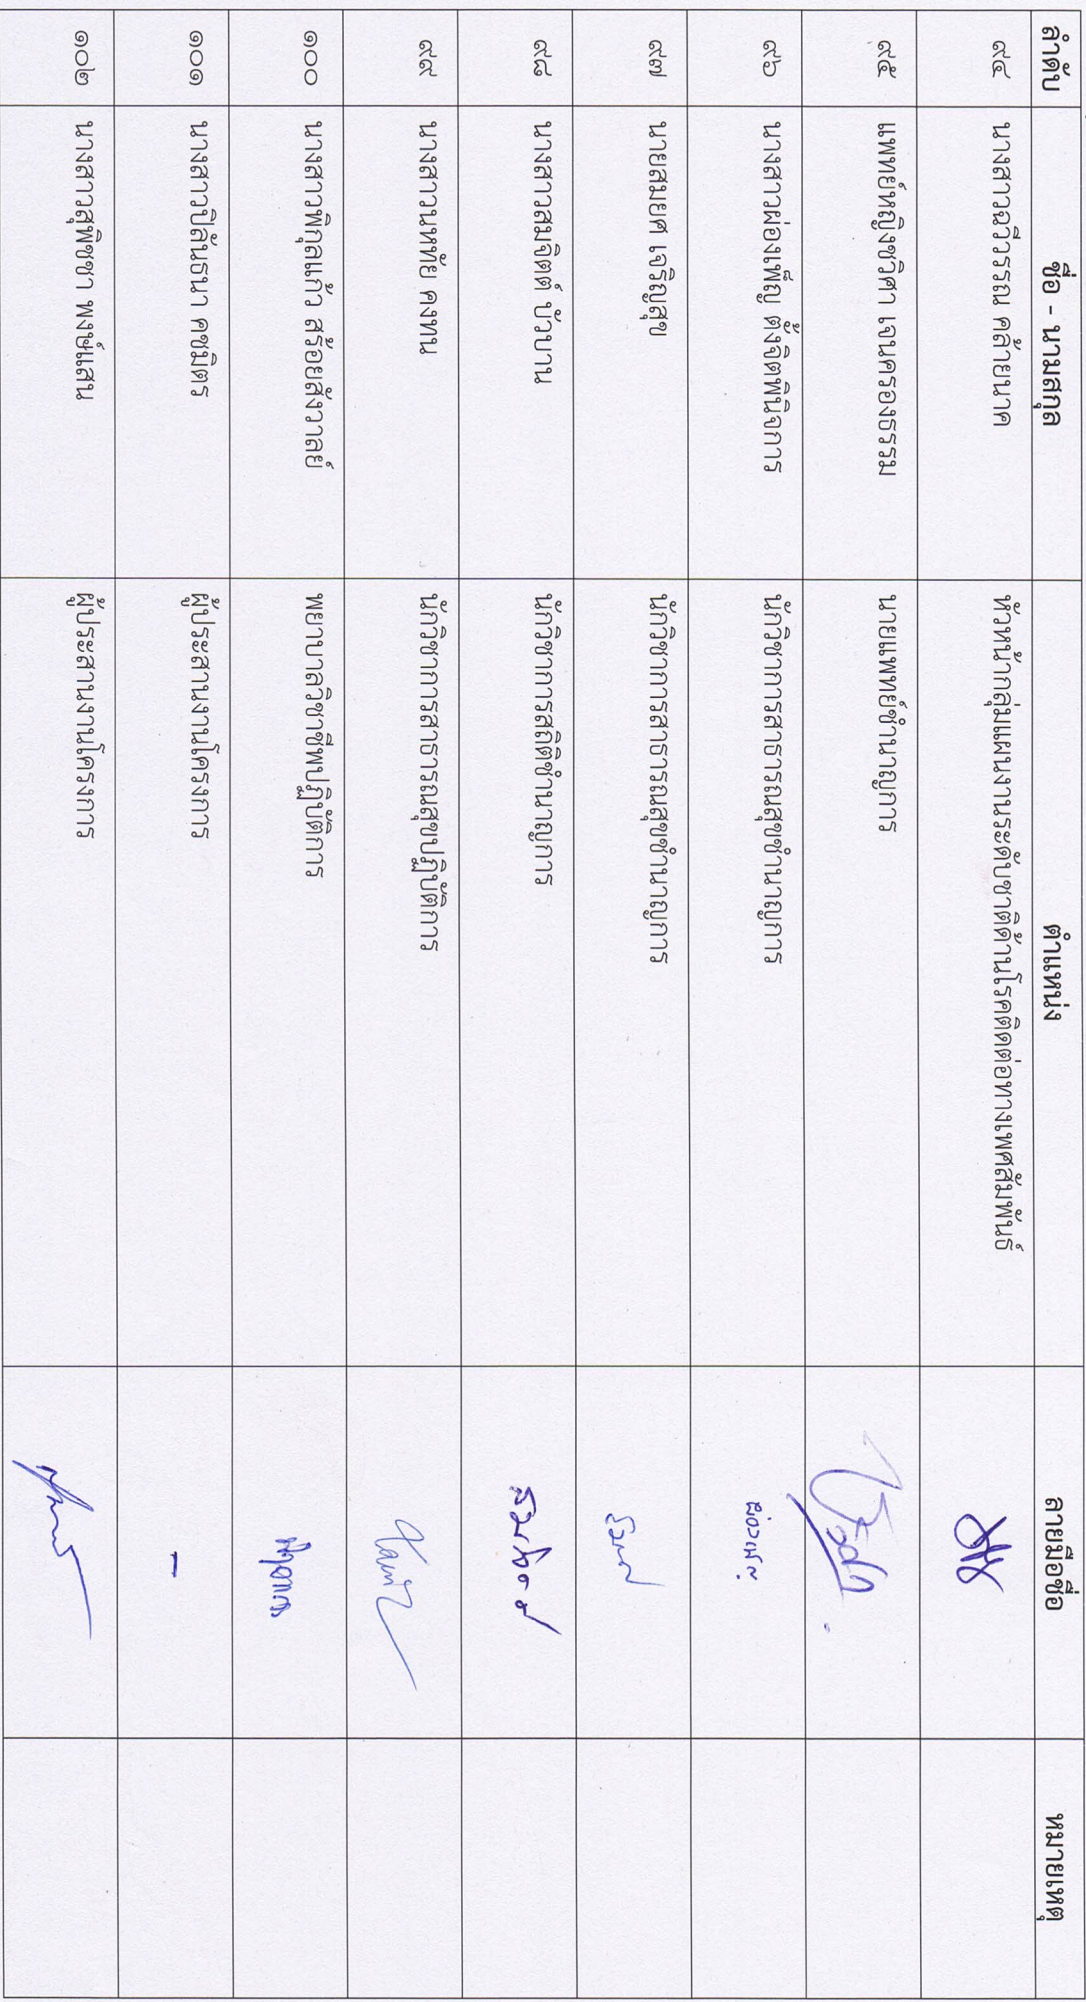 ลำดับ ชื่อ - นามสกุล ตำแหน่ง ลายมือชื่อ หมายเหตุ
๙๔ นางสาวฉวีวรรณ คล้ายนาค หัวหน้ากลุ่มแผนงานระดับชาติด้านโรคติดต่อทางเพศสัมพันธ์
๙๕ แพทย์หญิงชวิศา เจนครองธรรม นายแพทย์ชำนาญการ
๙๖ นางสาวผ่องเพ็ญ ตั้งจิตพินิจการ นักวิชาการสาธารณสุขชำนาญการ ผ่องเพ็ญ
๙๗ นายสมยศ เจริญสุข นักวิชาการสาธารณสุขชำนาญการ
๙๘ นางสาวสมจิตต์ บัวบาน นักวิชาการสถิติชำนาญการ
๙๙ นางสาวนหทัย คงทน นักวิชาการสาธารณสุขปฏิบัติการ
๑๐๐ นางสาวพิกุลแก้ว สร้อยสังวาลย์ พยาบาลวิชาชีพปฏิบัติการ
๑๐๑ นางสาวปิลันธนา คชมิตร ผู้ประสานงานโครงการ -
๑๐๒ นางสาวสุพิชชา พงษ์แสน ผู้ประสานงานโครงการ